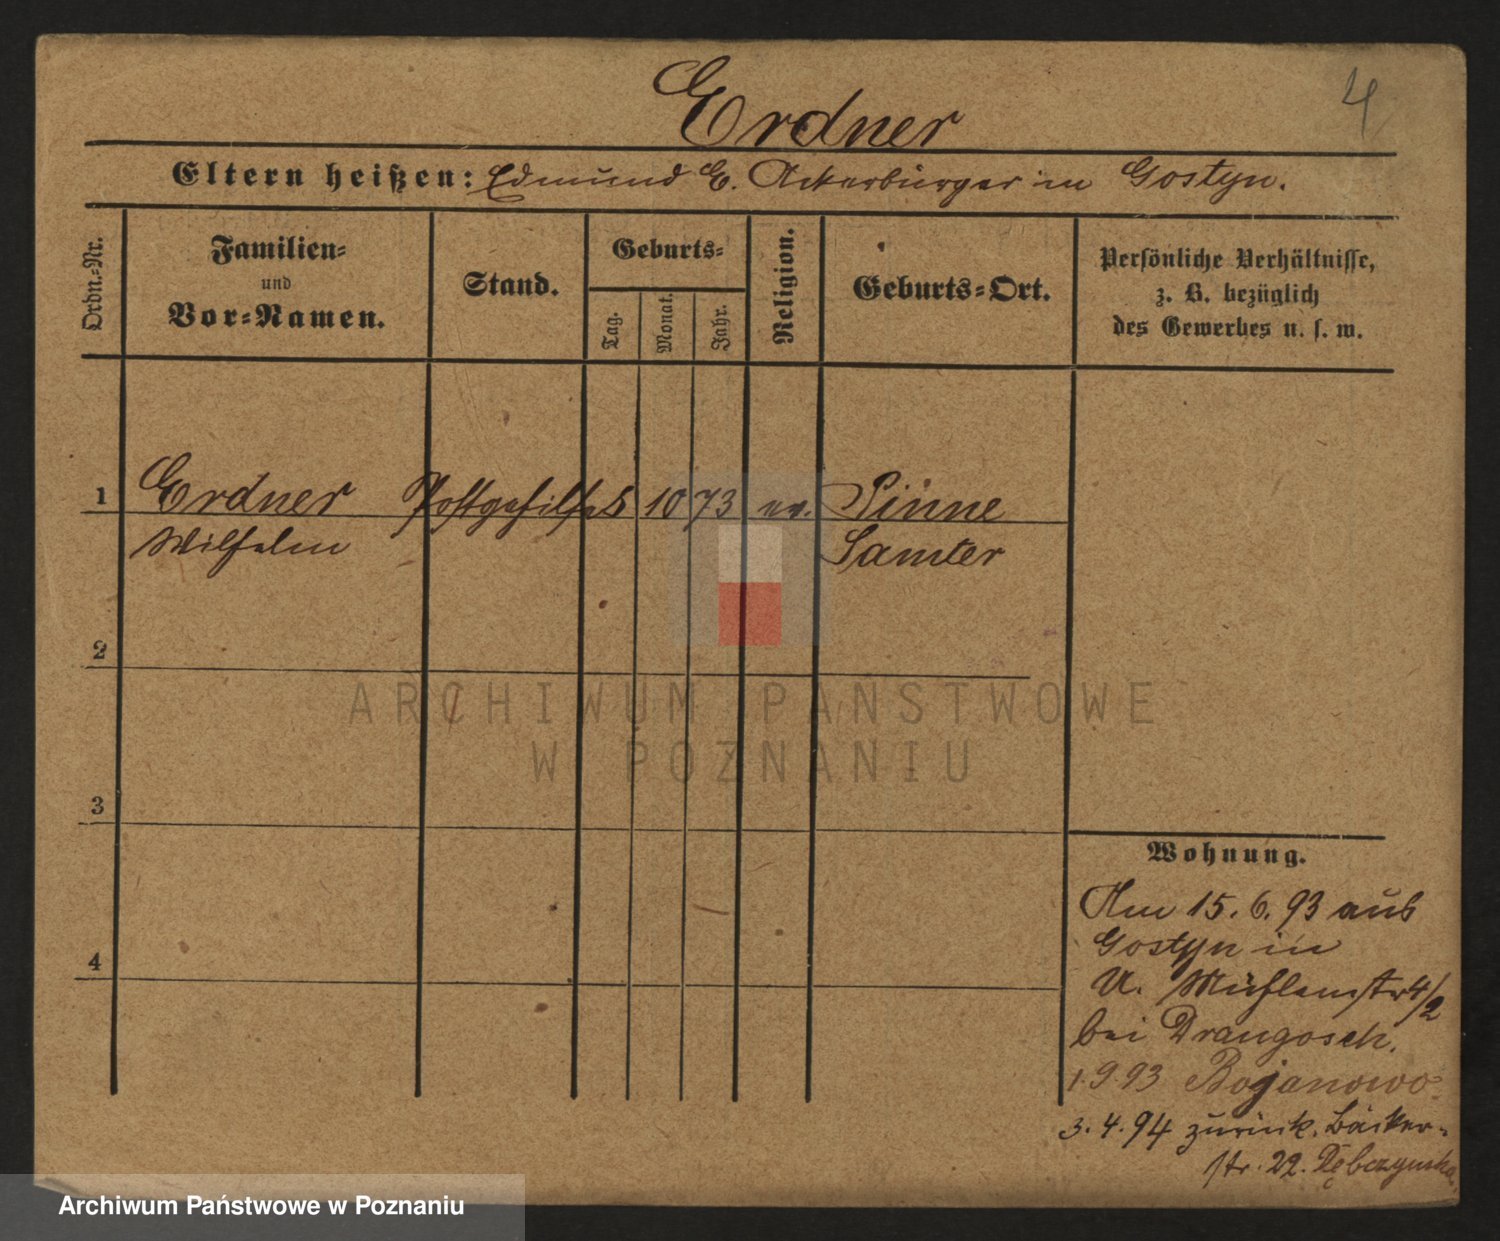 4
Erdner
Eltern heißen: Edmund E. Ackerbürger in Gostyn.
Ordn.-Nr.
Familien-
und
Vor-Namen.
Stand.
Geburts-
Tag.
Monat.
Jahr.
Religion.
Geburts-Ort.
Persönliche Verhältnisse,
z. B. bezüglich
des Gewerbes u. s. w.
1 Erdner Postgehilfe 5 10 73 ev. Pinne
Wilhelm Samter
2
3
4
Wohnung.
Am 15. 6. 93 aus
Gostyn in
U. Mühlenstr 4/2
bei Drangosch.
1.9.93 Bojanowo
3.4.94 zurück. Bäcker-
str. 22. Dębczynska.
ARCHIWUM PAŃSTWOWE
W POZNANIU
Archiwum Państwowe w Poznaniu